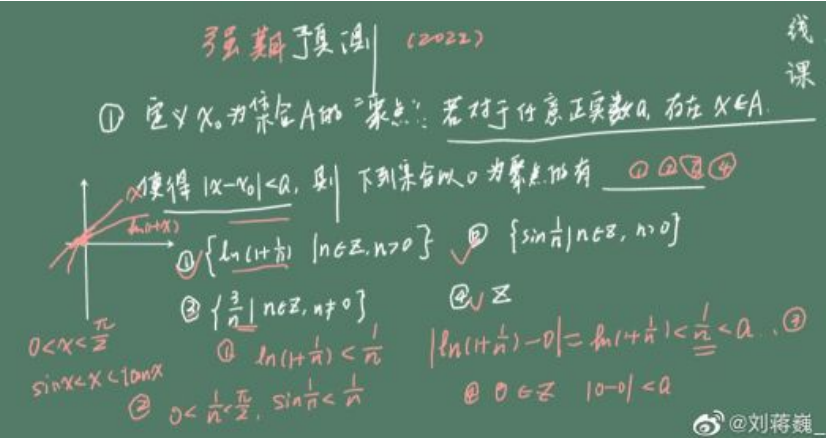 强基预测 (2022)
线课
① 定义x₀为集合A的“聚点”：若对于任意正实数a, 存在x∈A.
使得|x-x₀|<a, 则下列集合以0为聚点的有 ①②③④
① {ln(1+1/n) |n∈Z, n>0} ② {sin1/n|n∈Z, n>0}
③ {3/n|n∈Z, n≠0} ④ Z
x
ln(1+x)
0<x<π/2
sinx<x<tanx
① ln(1+1/n)<1/n |ln(1+1/n)-0|=ln(1+1/n)<1/n<a..
② 0<1/n<π/2, sin1/n<1/n ④ 0∈Z |0-0|<a
@刘蒋巍_